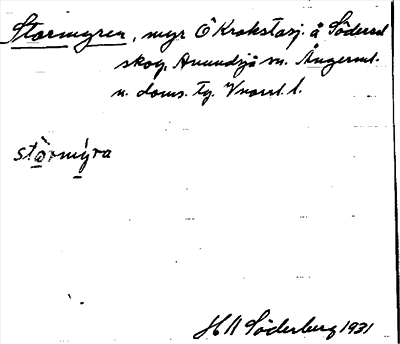 Stormyren, myr Ö Krokstasj. å Södersel
skog, Anundsjö sn. Ångerml.
n. doms. tg. Vnorrl. l.
stòrmýra
H Söderberg 1931